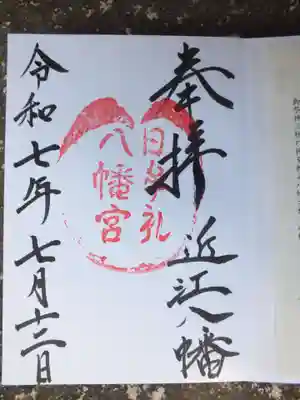 奉拝 近江八幡
日牟礼
八幡宮
令和七年七月十二日